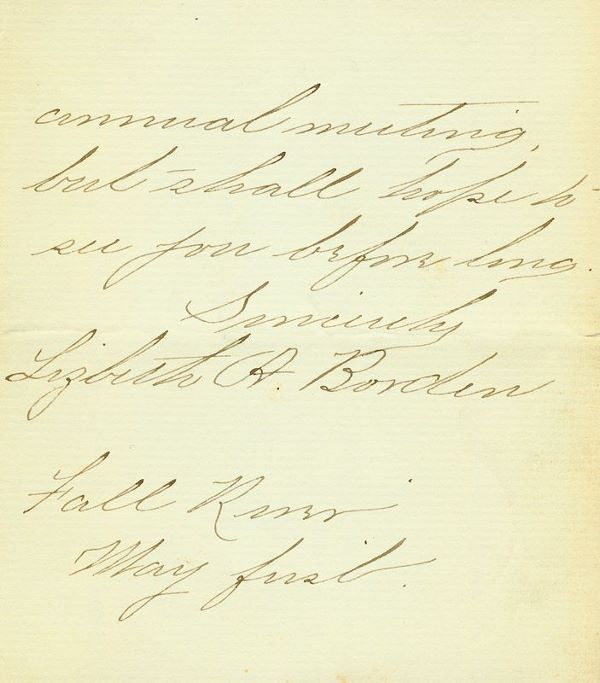 annual meeting,
but shall hope to
see you before long.
Sincerely
Lizbeth A. Borden
Fall River
May first.